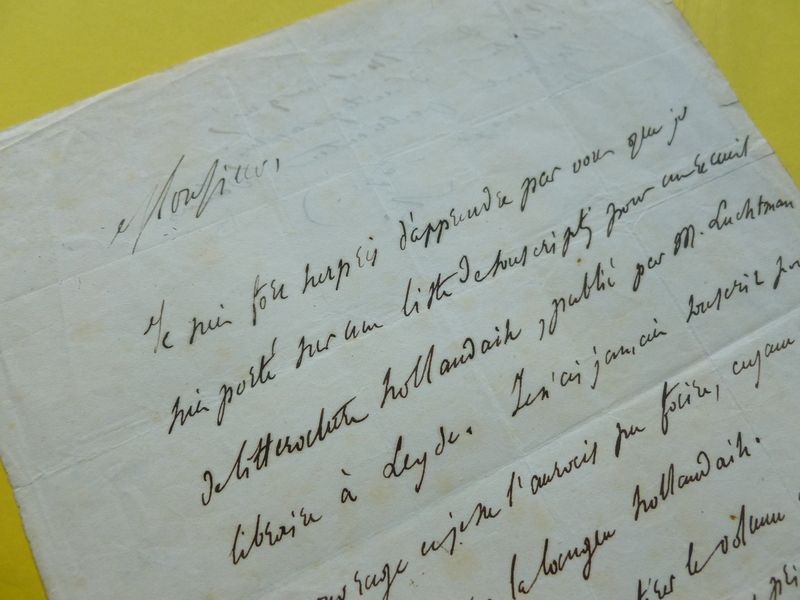 Monsieur,
Je suis fort surpris d'apprendre par vous que je
suis porté sur une liste de souscriptr pour un recueil
de litterature hollandaise, publié par M. Luchtman
libraire à Leyde. Je n'ai jamais souscrit pour
ouvrage et je ne l'aurois pu faire, ayant
la langue hollandaise.
le volume